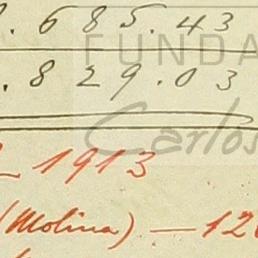 .685.43
FUNDA
.829.03
Carlos
1913
(Molina) — 12